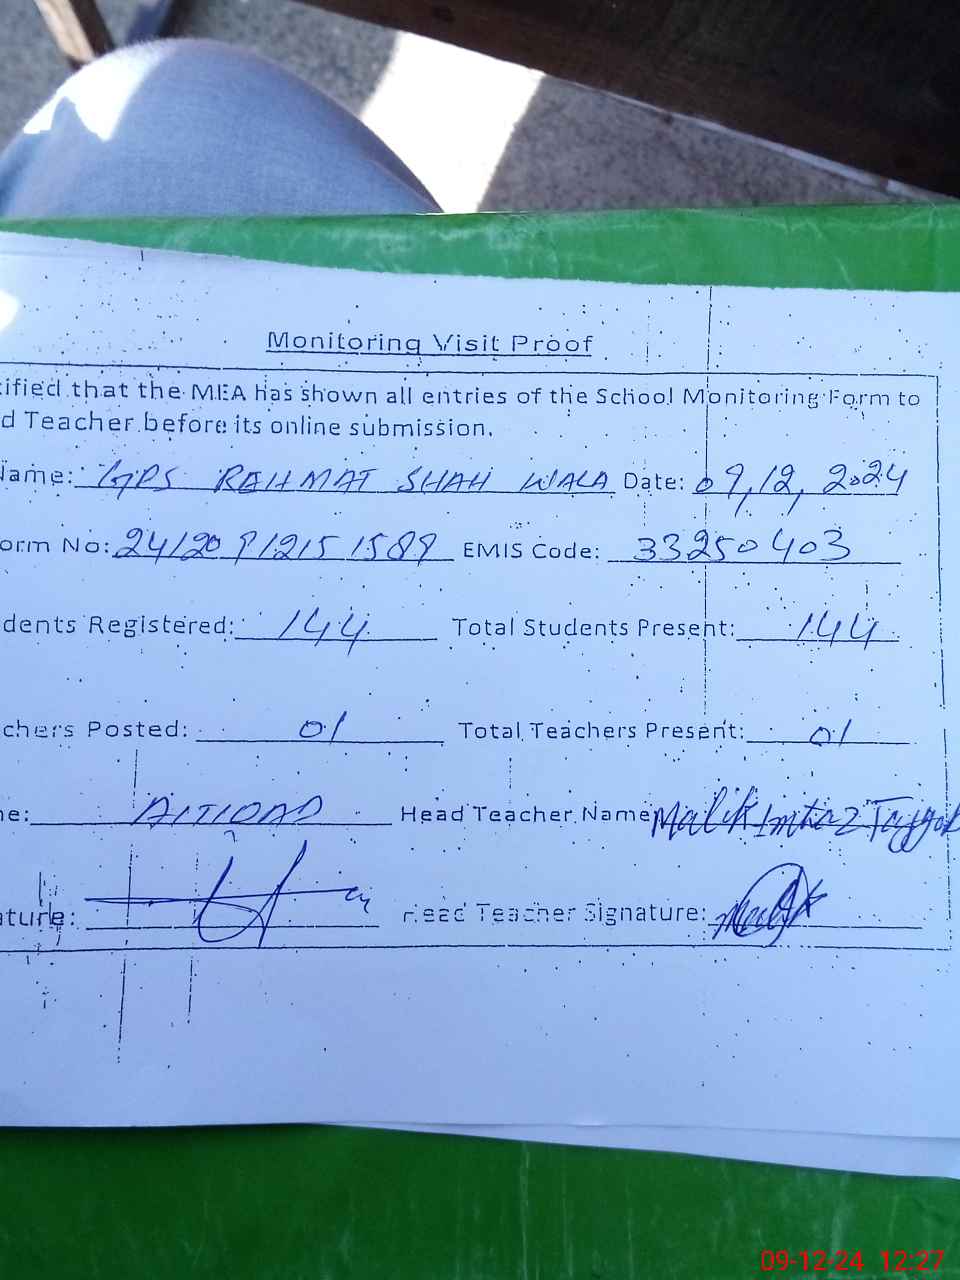 Monitoring Visit Proof
ified that the MEA has shown all entries of the School Monitoring Form to
d Teacher before its online submission.
Name: GPS REHMAT SHAH WALA Date: 09,12,2024
orm No: 24120912151589 EMIS Code: 33250403
dents Registered: 144 Total Students Present: 144
chers Posted: 01 Total Teachers Present: 01
ne: Head Teacher Name Malik Imtiaz
ature: Head Teacher Signature:
09-12-24 12:27